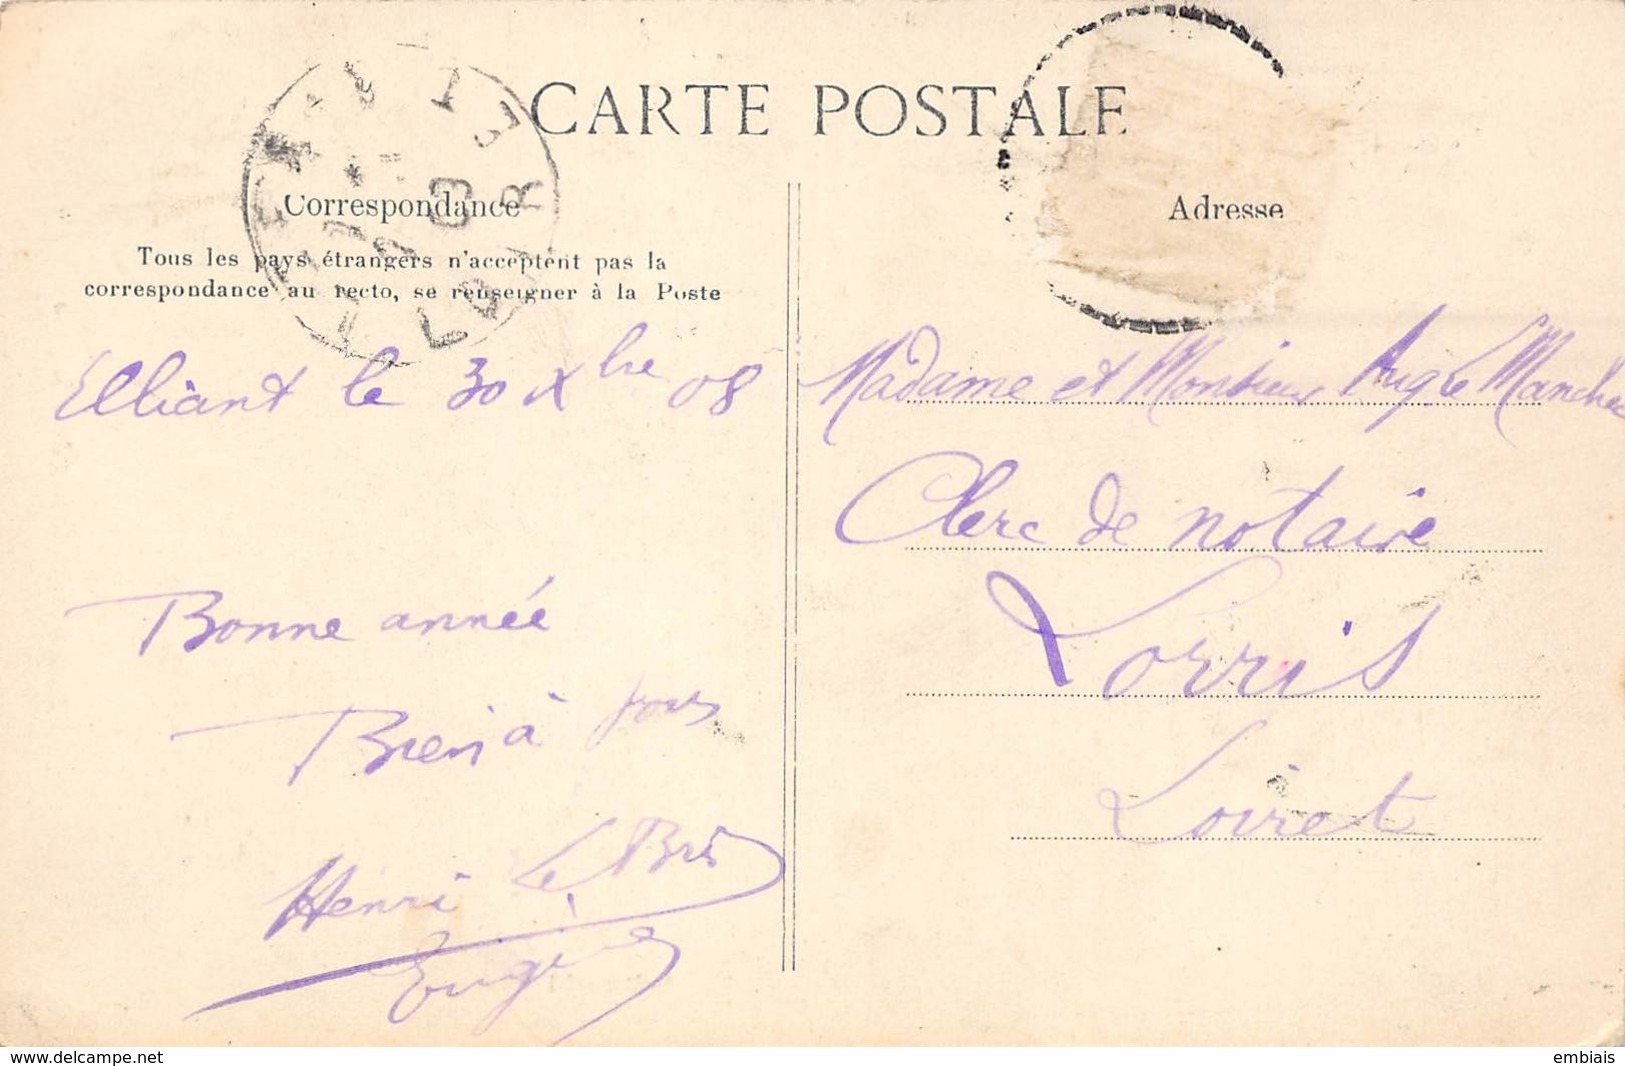 CARTE POSTALE
Correspondance
Tous les pays étrangers n'acceptent pas la
correspondance au recto, se renseigner à la Poste
Elliant le 30 Xbre 08
Bonne année
Bien à vous
Henri Le Bris
Adresse
Madame et Monsieur
Clerc de notaire
Lorris
Loiret
www.delcampe.net
embiais